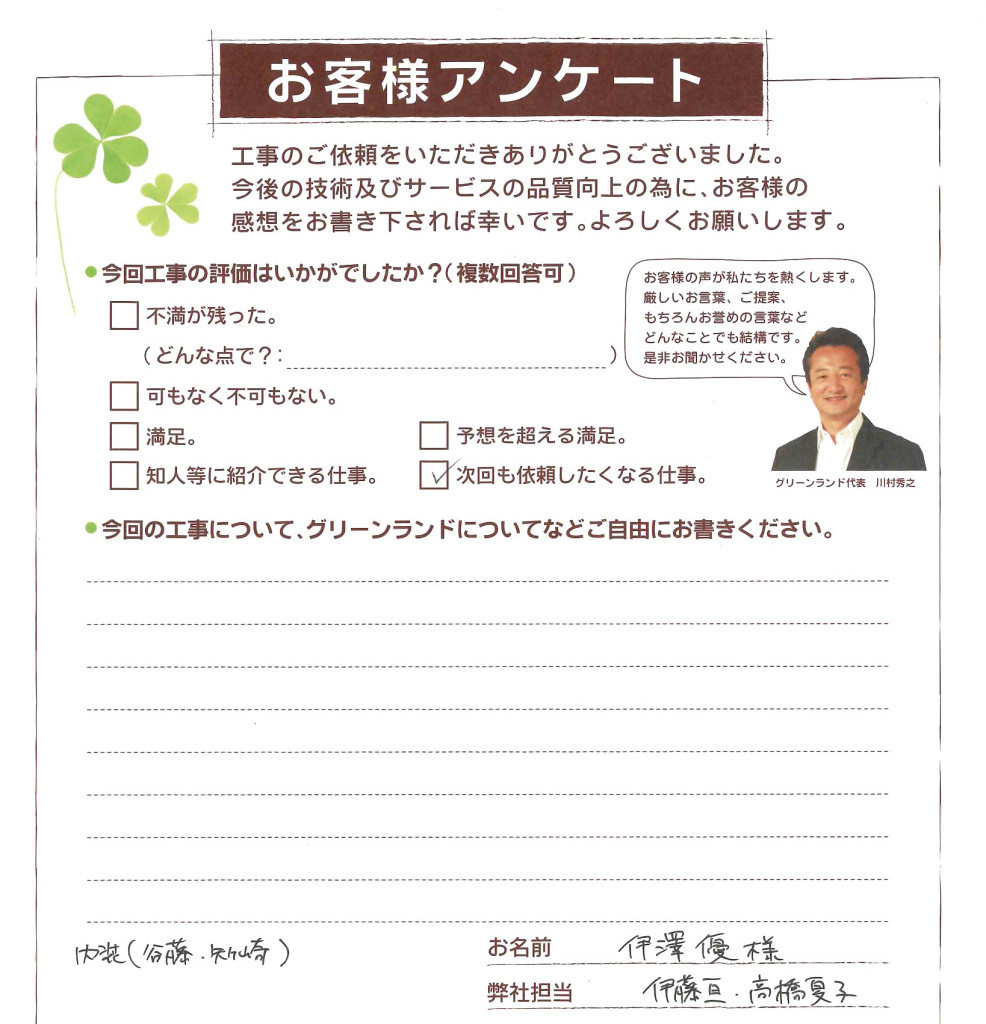 お客様アンケート
工事のご依頼をいただきありがとうございました。
今後の技術及びサービスの品質向上の為に、お客様の
感想をお書き下されば幸いです。よろしくお願いします。
今回工事の評価はいかがでしたか？（複数回答可）
お客様の声が私たちを熱くします。
厳しいお言葉、ご提案、
もちろんお誉めの言葉など
どんなことでも結構です。
是非お聞かせください。
グリーンランド代表　川村秀之
不満が残った。
（どんな点で？：　　　）
可もなく不可もない。
満足。
予想を超える満足。
知人等に紹介できる仕事。
次回も依頼したくなる仕事。
今回の工事について、グリーンランドについてなどご自由にお書きください。
内装(谷藤.矢崎)
お名前　伊澤優様
弊社担当　伊藤亘.高橋夏子